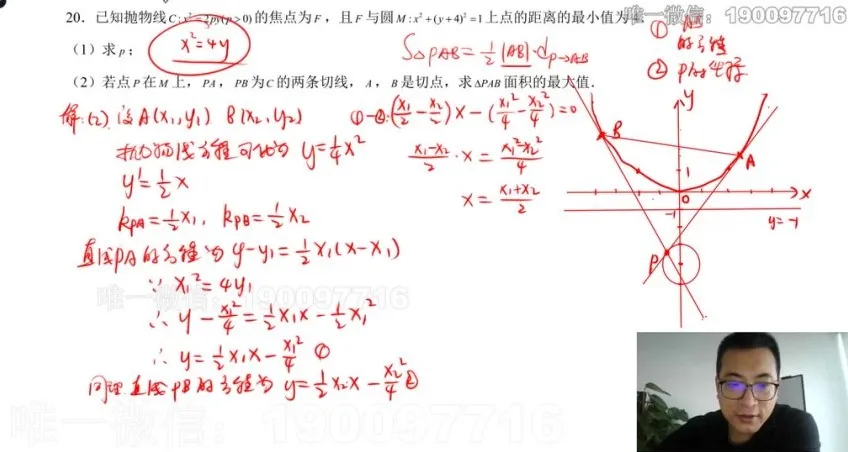 唯一微信：190097716
20. 已知抛物线C:x²=2py(p>0)的焦点为F，且F与圆M:x²+(y+4)²=1上点的距离的最小值为
（1）求p；
x²=4y
（2）若点P在M上，PA，PB为C的两条切线，A，B是切点，求△PAB面积的最大值.
S△PAB=½|AB|·d P→AB
①
的方程
②
解:(2) 设A(x₁,y₁) B(x₂,y₂)
抛物线方程可化为 y=¼x²
y'=½x
kPA=½x₁, kPB=½x₂
直线PA的方程为 y-y₁=½x₁(x-x₁)
∵ x₁²=4y₁
∴ y-x₁²/4=½x₁x-½x₁²
∴ y=½x₁x-x₁²/4 ①
同理 直线PB的方程为 y=½x₂x-x₂²/4 ②
①-②:(x₁/2-x₂/2)x-(x₁²/4-x₂²/4)=0
(x₁-x₂)/2·x=(x₁²-x₂²)/4
x=(x₁+x₂)/2
y
B
A
1
0
x
-1
y=-1
P
唯一微信：190097716
唯一微信：190097716